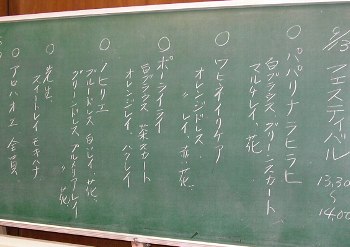 8/3 フェスティバル 13,30〜14,00
○ パパリナ ラヒラヒ
白ブラウス、グリーンスカート
マルケレイ、花
○ ワヒネイリケア
オレンジドレス、
オレンジレイ、赤、花
○ ポーライライ
白ブラウス 茶スカート
オレンジレイ、ハクレイ
○ ノヒリエ
ブルードレス 白レイ、花、
グリーンドレス プルメリアレイ 花
○ 先生
スイートレイ モキハナ
○ アロハオエ 全員